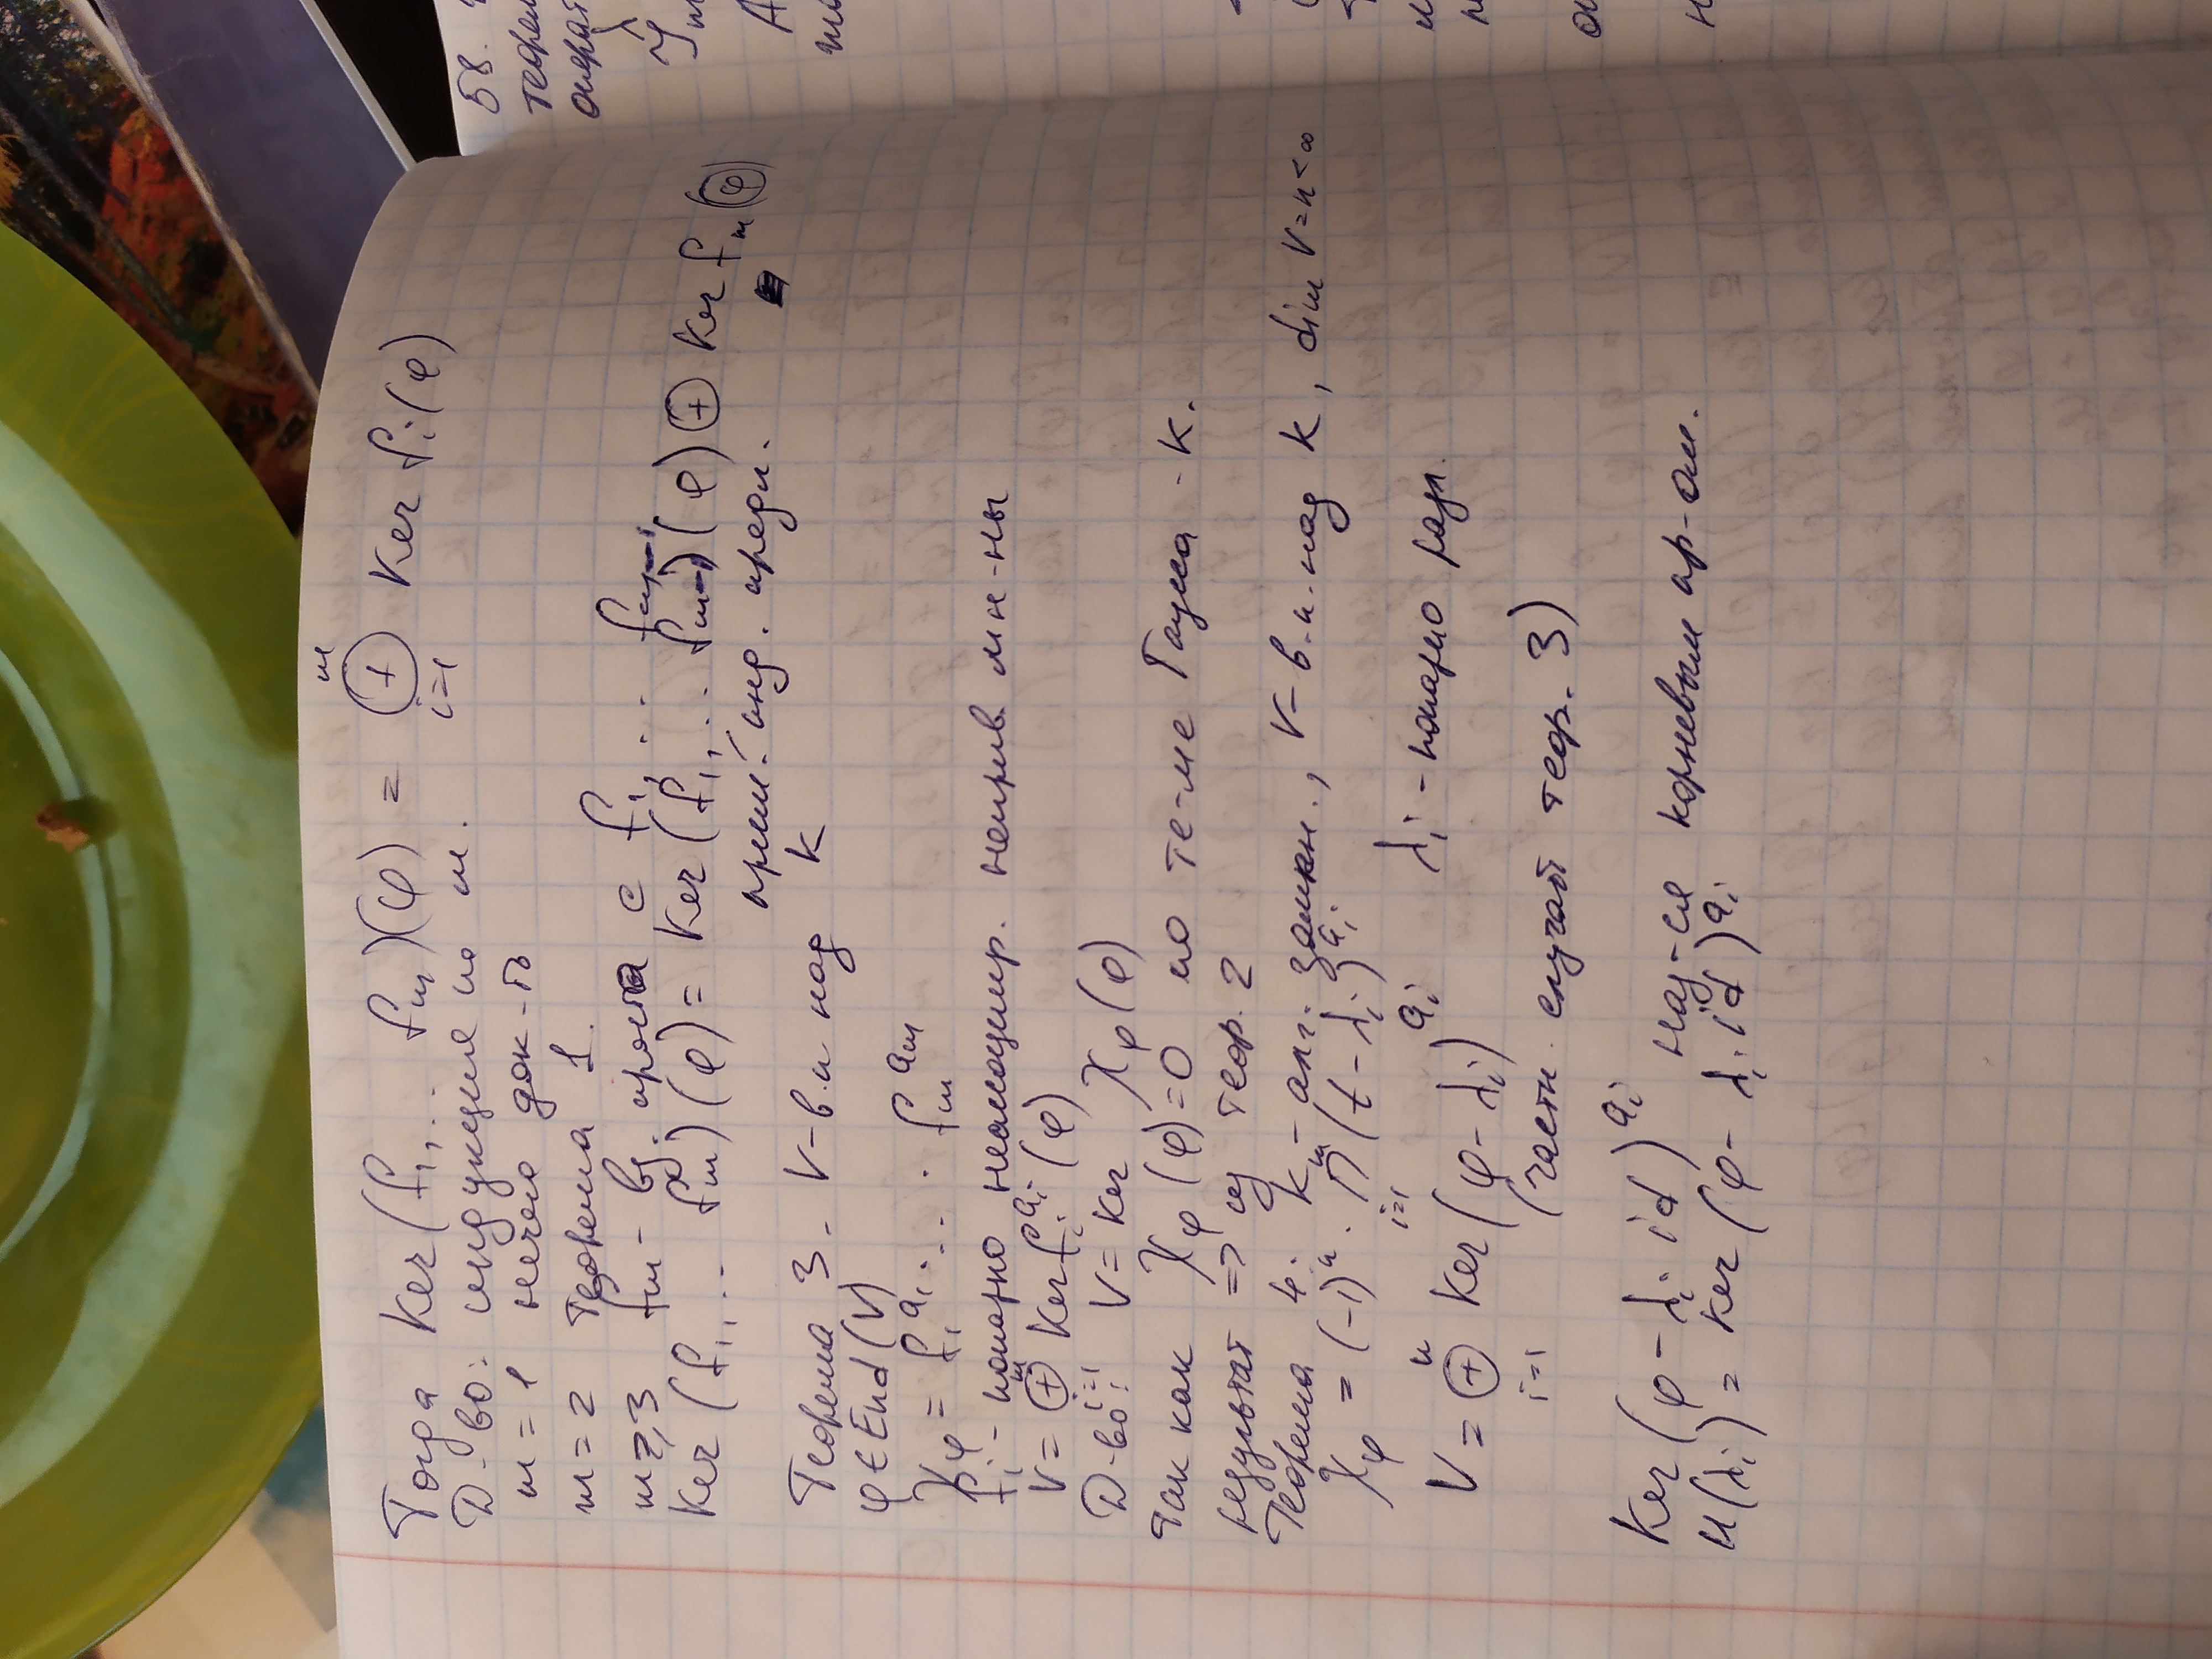 Тогда Ker(f₁... fₘ)(φ) = ⊕ᵢ₌₁ᵐ Ker fᵢ(φ)
D-во: индукция по m.
m = 1 нечего док-ть
m = 2 теорема 1.
m ≥ 3 fₘ - вз. проста с f₁... fₘ₋₁
Ker (f₁... fₘ)(φ) = Ker (f₁... fₘ₋₁)(φ) ⊕ Ker fₘ(φ)
прим. инд. предп.
Теорема 3 - V - в.п над K
φ ∈ End(V)
χφ = f₁^a₁ ... fₘ^aₘ
fᵢ - попарно неассоциир. неприв мн-ны
V = ⊕ᵢ₌₁ᵐ Ker fᵢ^aᵢ(φ)
D-во: V = Ker χφ(φ)
Так как χφ(φ) = 0 по те-ме Гаума - К.
результат => из теор. 2
Теорема 4. K - алг. замкн., V - в.п. над K, dim V = n < ∞
χφ = (-1)ⁿ · ∏ᵢ₌₁ᵐ (t - λᵢ)^aᵢ
V = ⊕ᵢ₌₁ⁿ Ker(φ - λᵢ)^aᵢ λᵢ - попарно разл.
(частн. случай теор. 3)
Ker (φ - λᵢ · id)^aᵢ наз-ся корневым пр-ом.
U(λᵢ) = Ker (φ - λᵢ · id)^aᵢ
58.